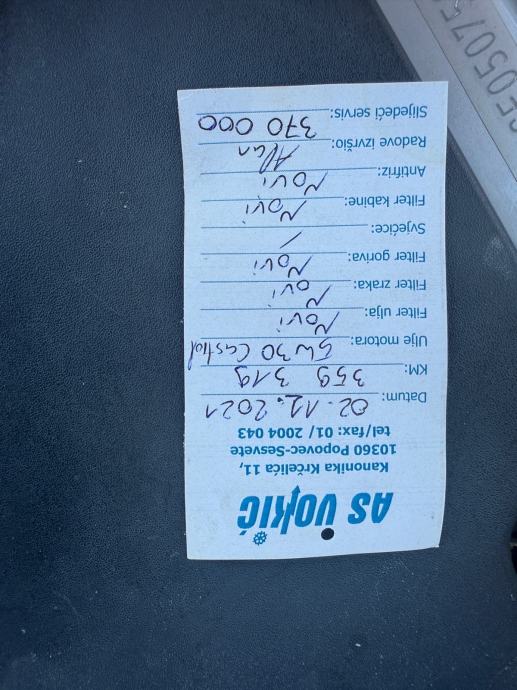 AS VOKIĆ
Kanonika Krčelića 11,
10360 Popovec-Sesvete
tel/fax: 01/ 2004 043
Datum: 02.12.2021
KM: 359 319
Ulje motora: 5W30 Castrol
Filter ulja: Novi
Filter zraka: Novi
Filter goriva: Novi
Svjećice: /
Filter kabine: Novi
Antifriz: Novi
Radove izvršio: Alan
Slijedeći servis: 370 000